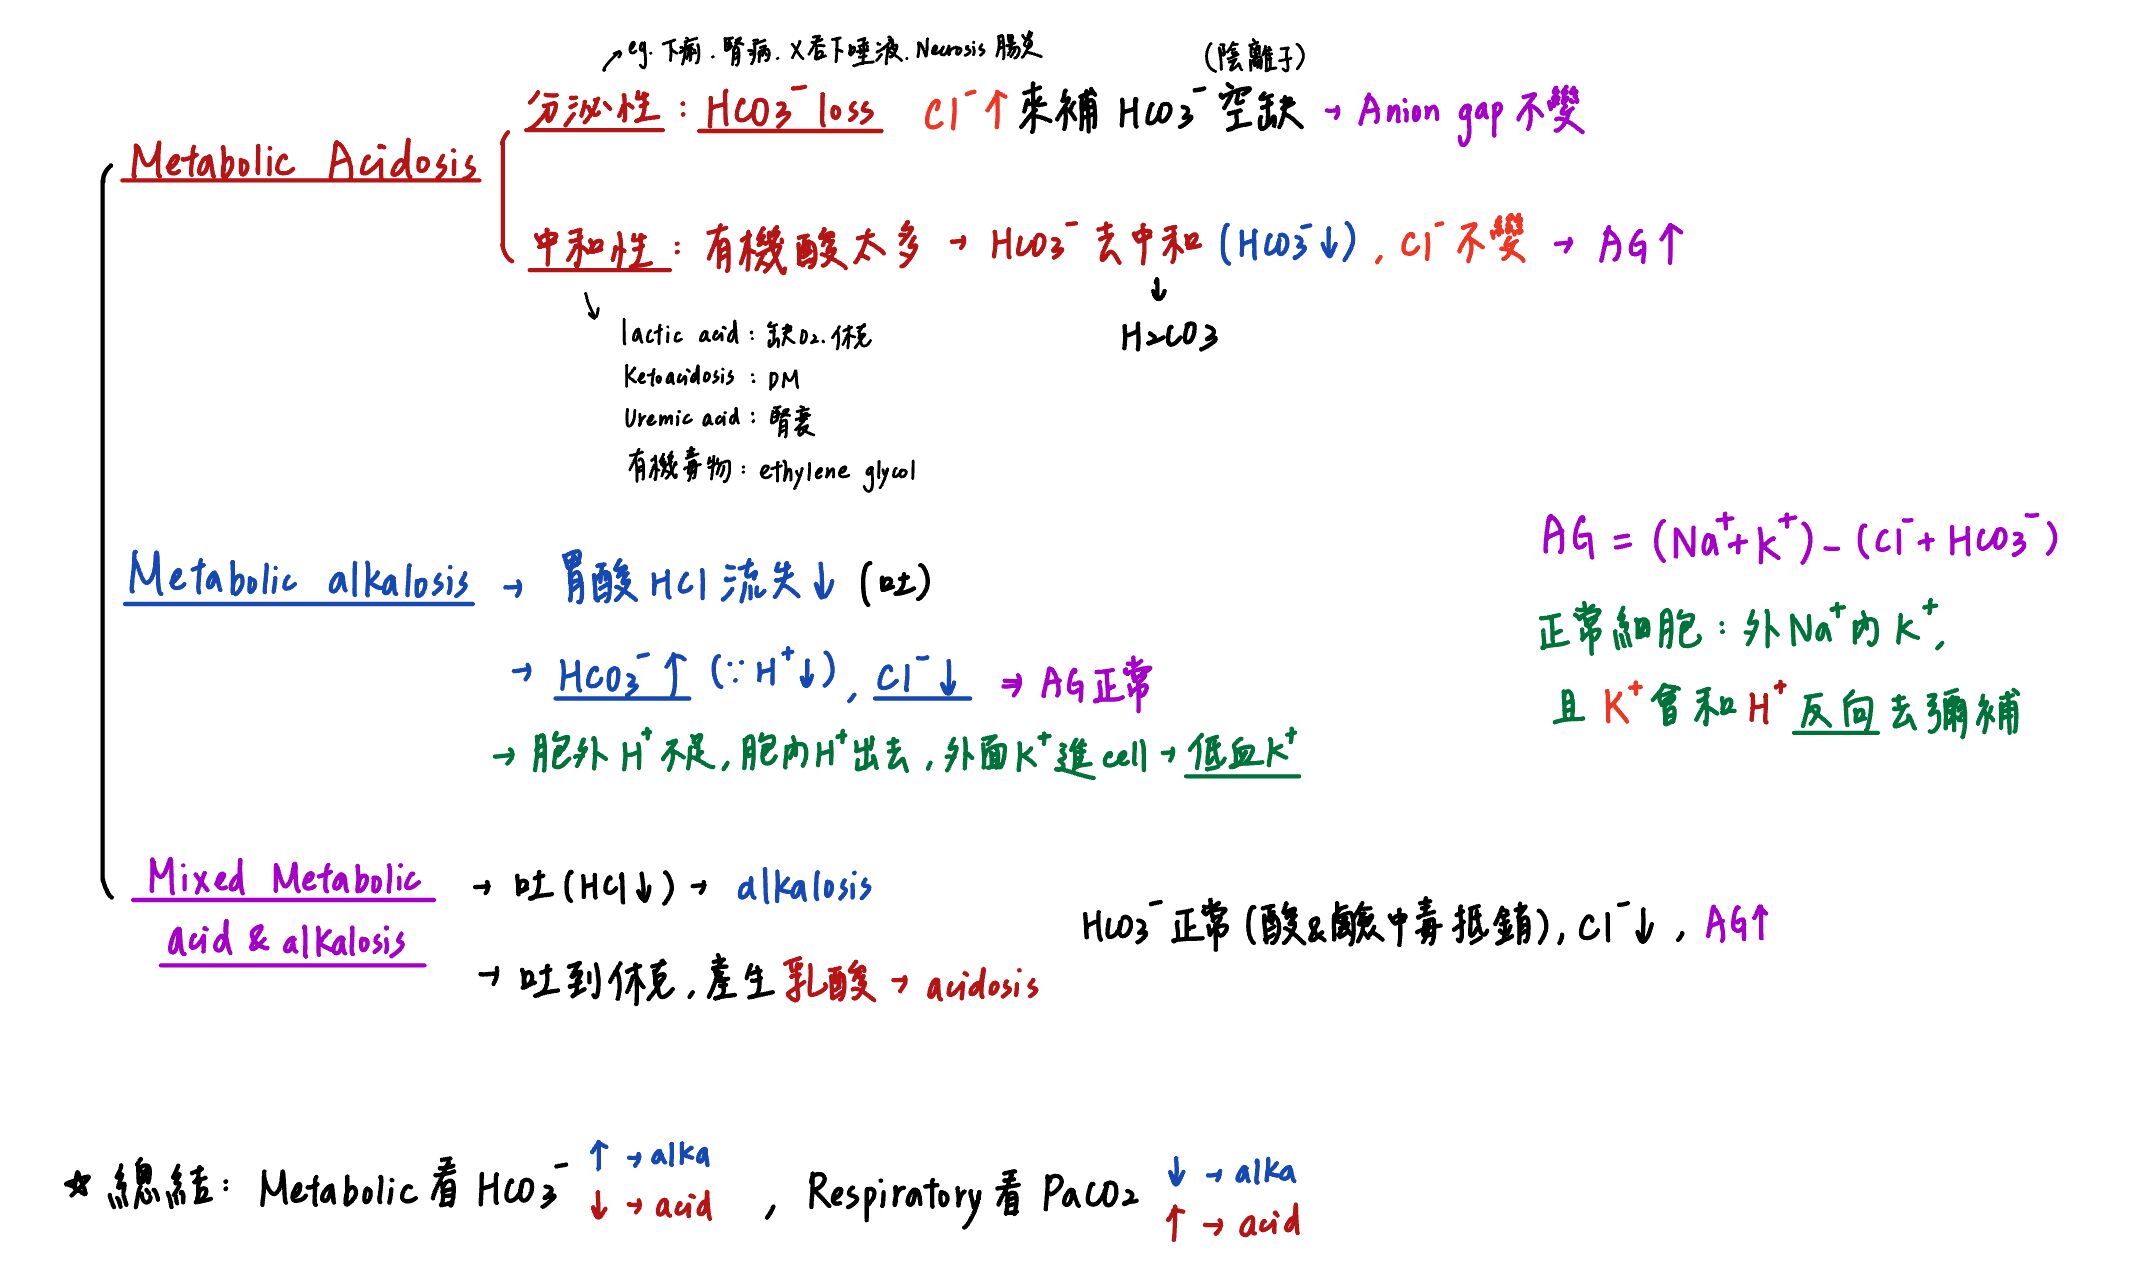 eg. 下痢. 腎病. X吞下唾液. Necrosis 腸炎
(陰離子)
分泌性：HCO3⁻ loss Cl⁻↑來補 HCO3⁻空缺 → Anion gap 不變
Metabolic Acidosis
中和性：有機酸太多 → HCO3⁻去中和 (HCO3⁻↓), Cl⁻不變 → AG↑
↓
H2CO3
lactic acid：缺O2.休克
Ketoacidosis：DM
Uremic acid：腎衰
有機毒物：ethylene glycol
AG = (Na⁺+K⁺) - (Cl⁻+ HCO3⁻)
正常細胞：外Na⁺內K⁺,
且 K⁺會和H⁺反向去彌補
Metabolic alkalosis → 胃酸 HCl 流失↓ (吐)
→ HCO3⁻↑ (∵H⁺↓), Cl⁻↓ ⇒ AG正常
→ 胞外 H⁺不足, 胞內H⁺出去, 外面K⁺進cell → 低血K⁺
Mixed Metabolic → 吐(HCl↓) → alkalosis
acid & alkalosis
HCO3⁻正常 (酸&鹼中毒抵銷), Cl⁻↓, AG↑
→ 吐到休克, 產生乳酸 → acidosis
☆ 總結：Metabolic 看 HCO3⁻ ↑ → alka
↓ → acid
, Respiratory 看 PaCO2 ↓ → alka
↑ → acid